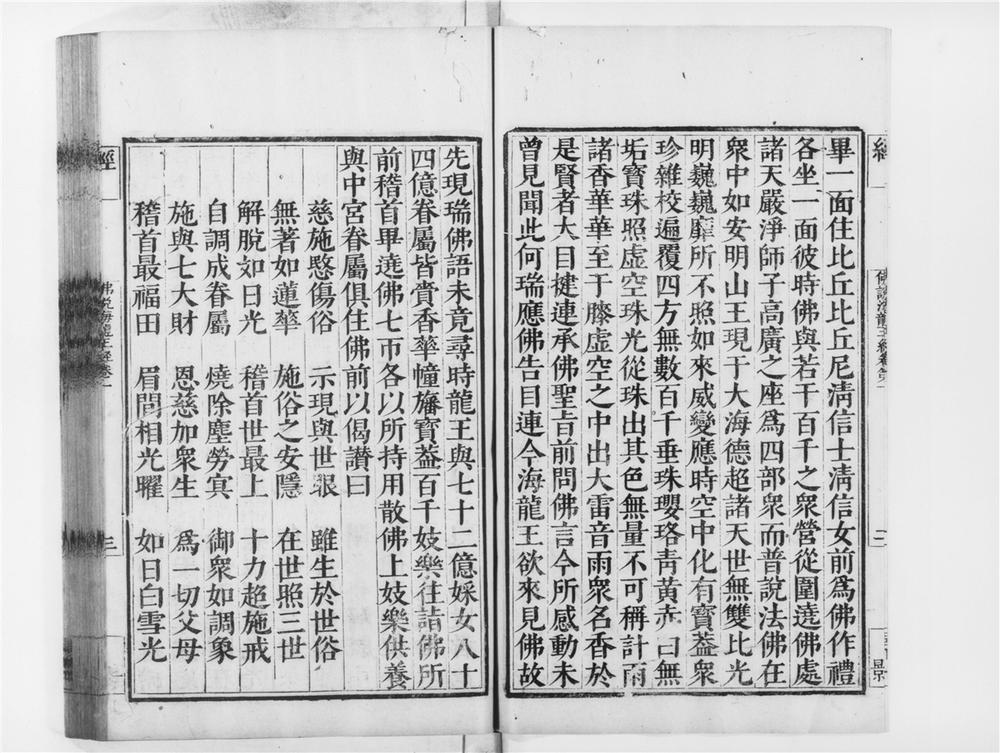 畢一面住比丘比丘尼清信士清信女前爲佛作禮
各坐一面彼時佛與若干百千之衆營從圍遶佛處
諸天嚴淨師子高廣之座爲四部衆而普說法佛在
衆中如安明山王現于大海德超諸天世無雙比光
明巍巍靡所不照如來威變應時空中化有寶葢衆
珍雜校遍覆四方無數百千垂珠瓔珞青黃赤白無
垢寶珠照虛空珠光從珠出其色無量不可稱計雨
諸香華華至于膝虛空之中出大雷音雨衆名香於
是賢者大目揵連承佛聖旨前問佛言今所感動未
曾見聞此何瑞應佛告目連今海龍王欲來見佛故
先現瑞佛語未竟尋時龍王與七十二億婇女八十
四億眷屬皆賫香華幢旛寶葢百千妓樂往詣佛所
前稽首畢遶佛七帀各以所持用散佛上妓樂供養
與中宮眷屬俱住佛前以偈讃曰
慈施愍傷俗　示現與世眼　雖生於世俗
無著如蓮華　施俗之安隱　在世照三世
解脫如日光　稽首世最上　十力超施戒
自調成眷屬　燒除塵勞㝠　御衆如調象
施與七大財　恩慈加衆生　爲一切父母
稽首最福田　眉間相光曜　如日白雪光
經
佛說海龍王經卷一
三